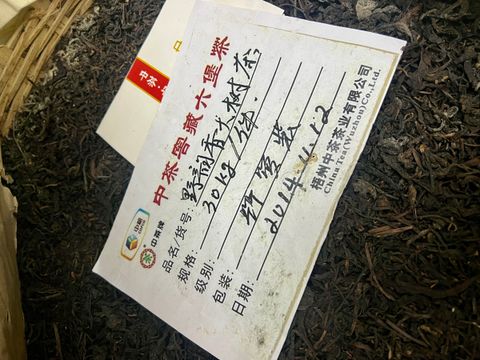 中茶
中粮
中茶牌
中茶窖藏六堡茶
品名/货号:野大树茶
规格:30kg/箩.
级别:
包装:装
日期:2014.4.12
梧州中茶茶业有限公司
China Tea(Wuzhou)Co.,Ltd.